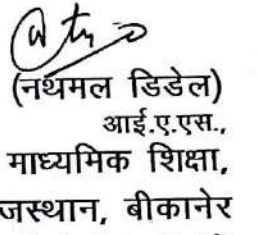 (नथमल डिडेल)
आई.ए.एस.,
माध्यमिक शिक्षा,
जस्थान, बीकानेर